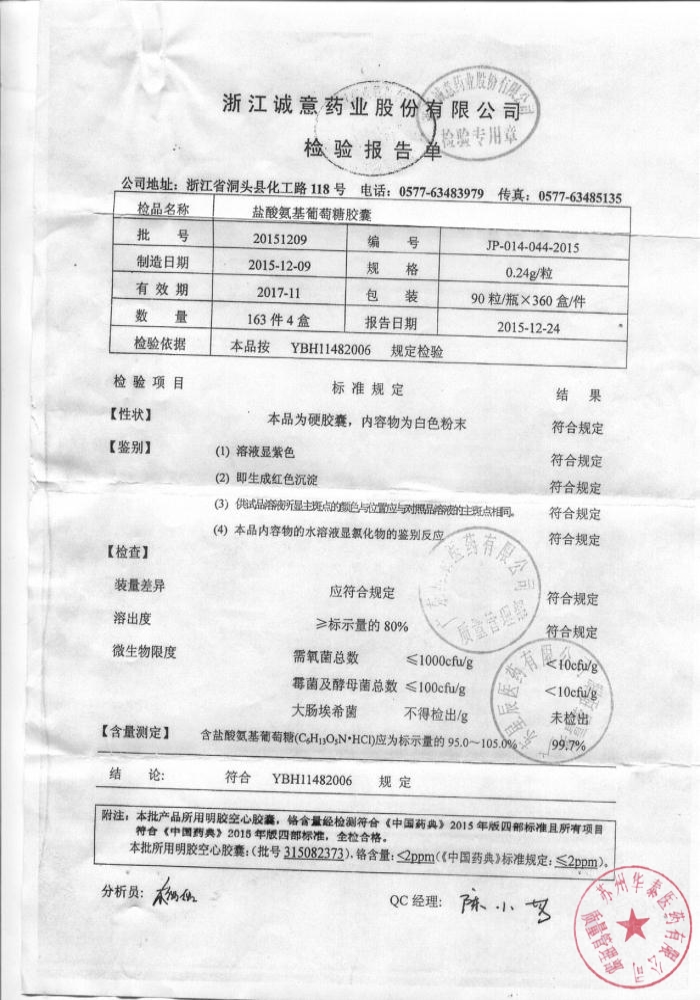 浙江诚意药业股份有限公司
检验报告单
检验专用章
公司地址：浙江省洞头县化工路 118 号 电话：0577-63483979 传真：0577-63485135
检品名称 盐酸氨基葡萄糖胶囊
批 号 20151209 编 号 JP-014-044-2015
制造日期 2015-12-09 规 格 0.24g/粒
有 效 期 2017-11 包 装 90 粒/瓶×360 盒/件
数 量 163 件 4 盒 报告日期 2015-12-24
检验依据 本品按 YBH11482006 规定检验
检 验 项 目 标 准 规 定 结 果
【性状】 本品为硬胶囊，内容物为白色粉末 符合规定
【鉴别】 (1) 溶液显紫色 符合规定
(2) 即生成红色沉淀 符合规定
(3) 供试品溶液所显主斑点的颜色与位置应与对照品溶液的主斑点相同。 符合规定
(4) 本品内容物的水溶液显氯化物的鉴别反应 符合规定
【检查】
装量差异 应符合规定 符合规定
溶出度 ≥标示量的 80% 符合规定
微生物限度 需氧菌总数 ≤1000cfu/g <10cfu/g
霉菌及酵母菌总数 ≤100cfu/g <10cfu/g
大肠埃希菌 不得检出/g 未检出
【含量测定】 含盐酸氨基葡萄糖(C₆H₁₃O₅N•HCl)应为标示量的 95.0～105.0% 99.7%
结 论: 符合 YBH11482006 规 定
附注：本批产品所用明胶空心胶囊，铬含量经检测符合《中国药典》2015 年版四部标准且所有项目
符合《中国药典》2015 年版四部标准，全检合格。
本批所用明胶空心胶囊：(批号 315082373)，铬含量: <2ppm(《中国药典》标准规定: ≤2ppm)。
分析员: QC 经理: 陈小
苏州华泰医药有限公司
质量管理部